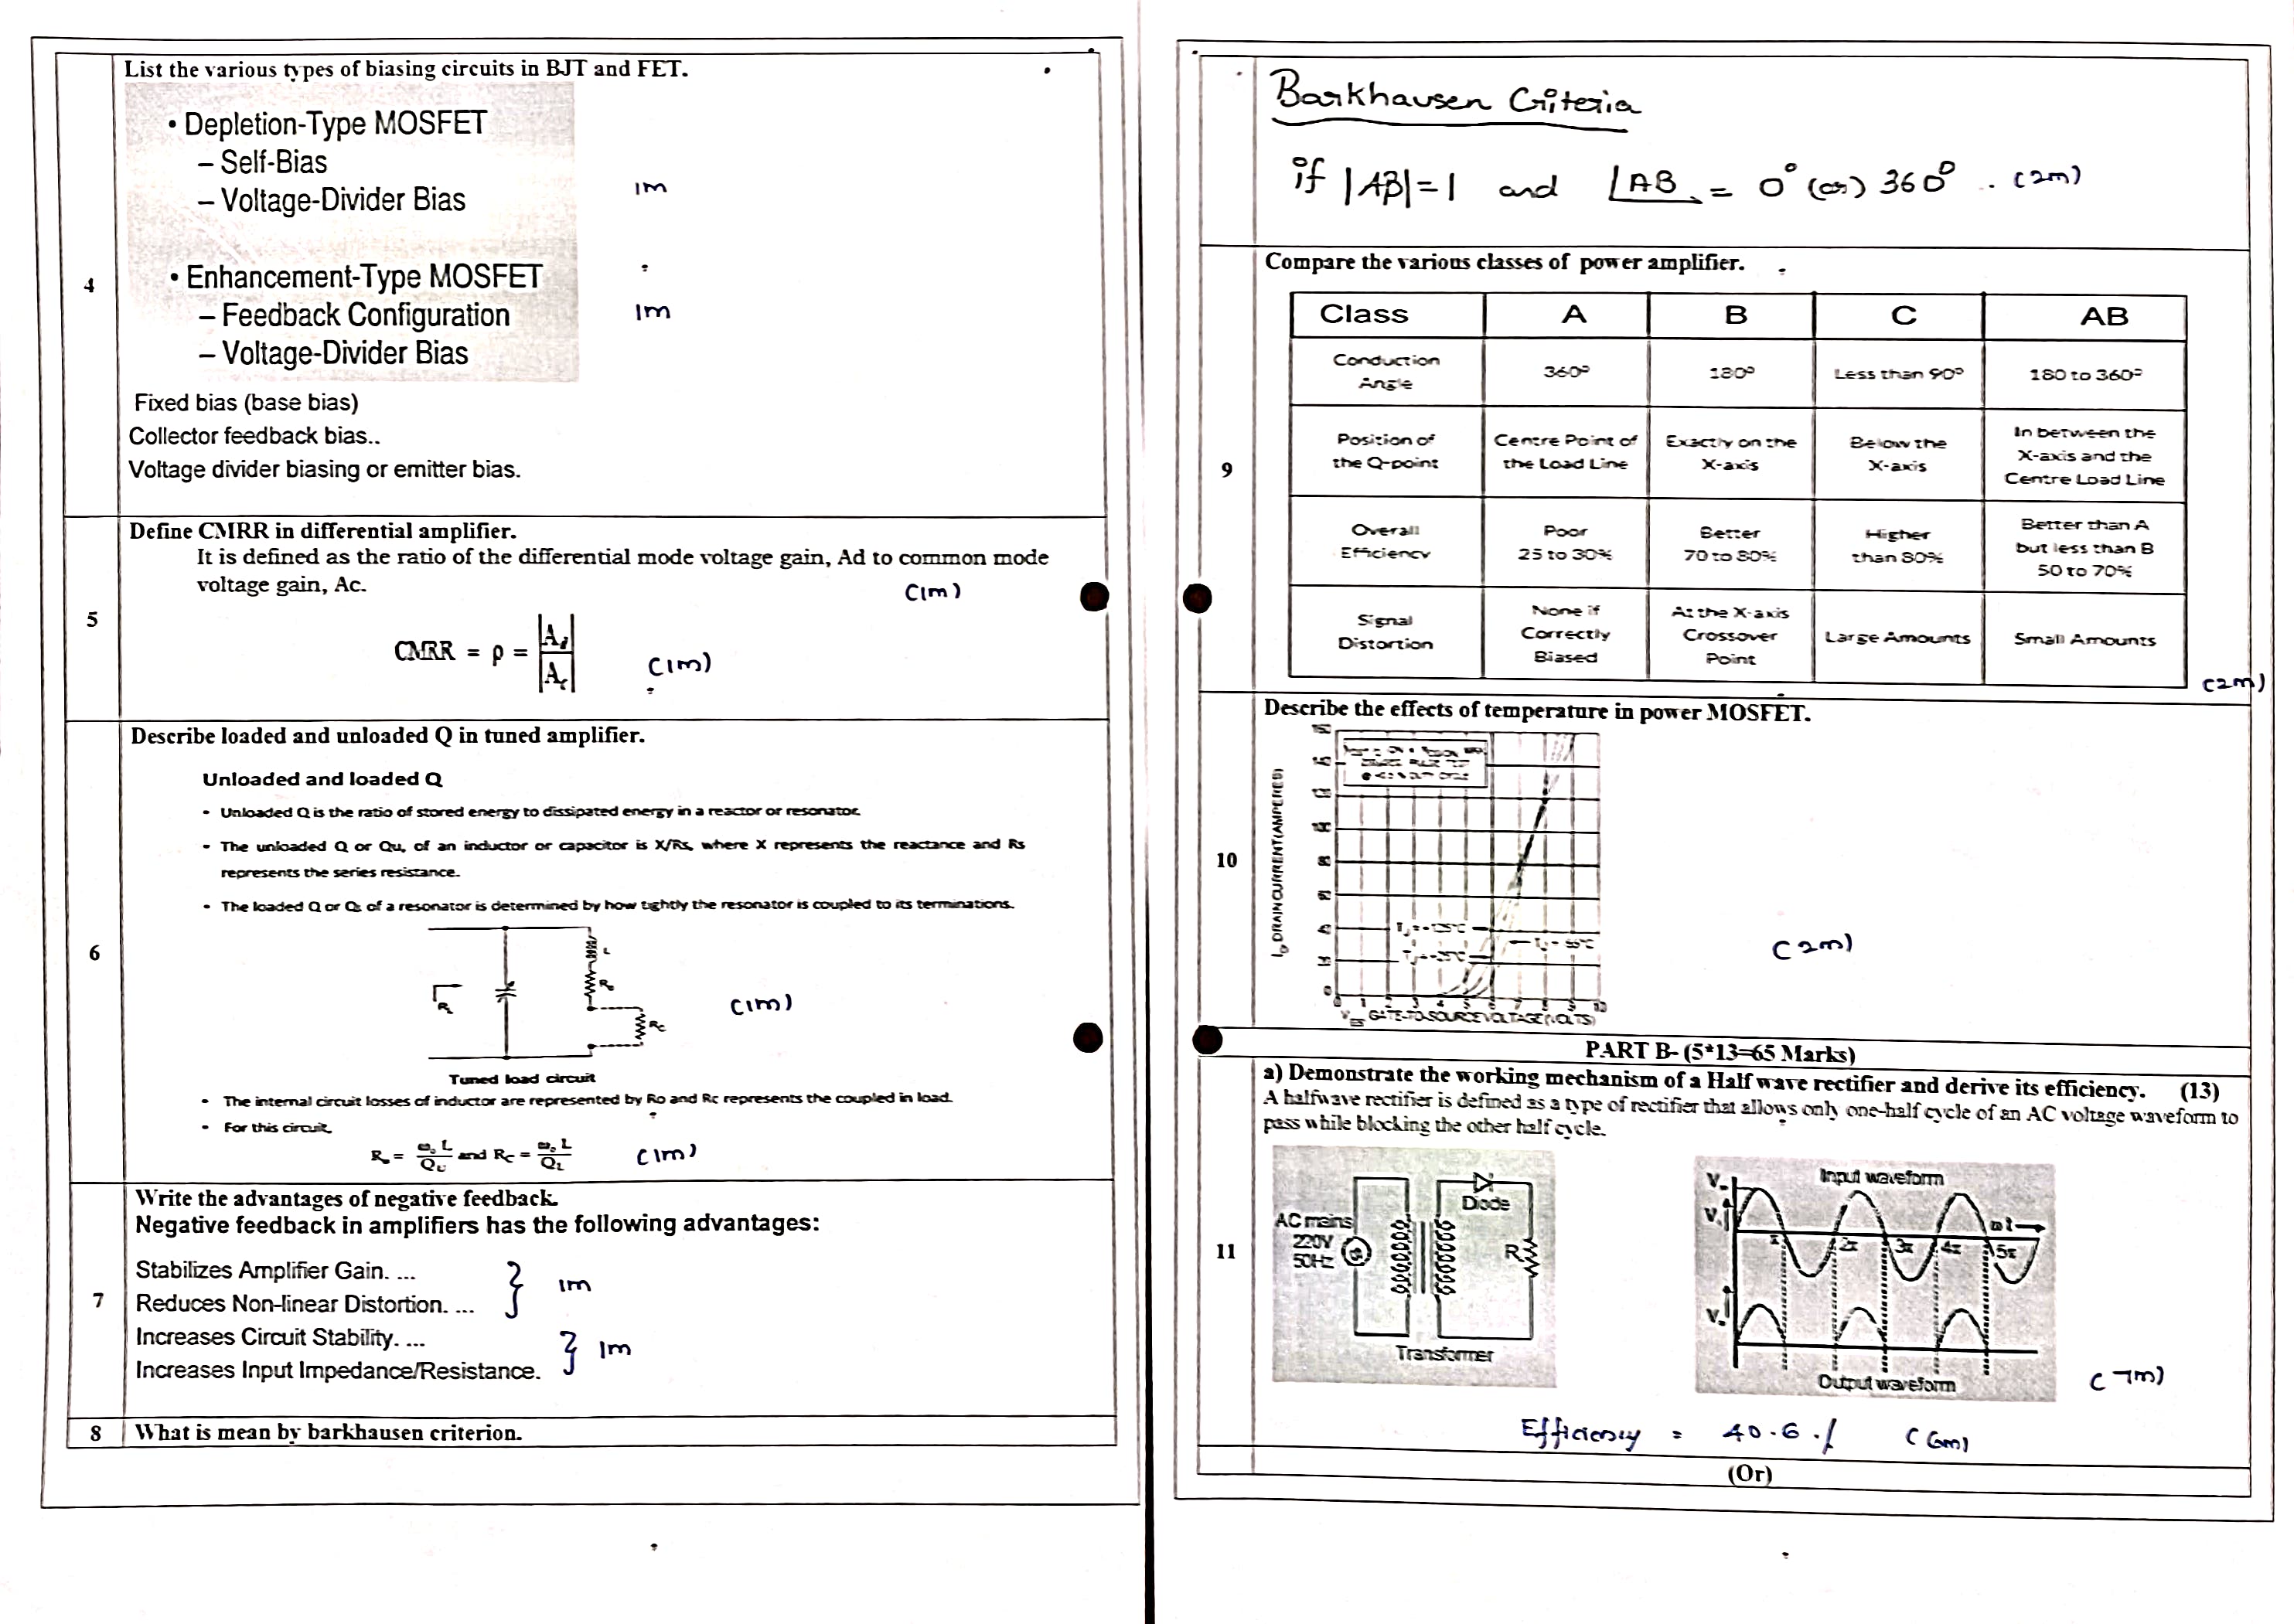 4
List the various types of biasing circuits in BJT and FET.
• Depletion-Type MOSFET
– Self-Bias
– Voltage-Divider Bias
1m
• Enhancement-Type MOSFET
– Feedback Configuration
1m
– Voltage-Divider Bias
Fixed bias (base bias)
Collector feedback bias..
Voltage divider biasing or emitter bias.
5
Define CMRR in differential amplifier.
It is defined as the ratio of the differential mode voltage gain, Ad to common mode
voltage gain, Ac.
(1m)
CMRR = ρ = |Ad/Ac|
(1m)
6
Describe loaded and unloaded Q in tuned amplifier.
Unloaded and loaded Q
• Unloaded Q is the ratio of stored energy to dissipated energy in a reactor or resonator.
• The unloaded Q or Qu, of an inductor or capacitor is X/Rs, where X represents the reactance and Rs
represents the series resistance.
• The loaded Q or QL of a resonator is determined by how tightly the resonator is coupled to its terminations.
L
Ro
RL
Rc
(1m)
Tuned load circuit
• The internal circuit losses of inductor are represented by Ro and Rc represents the coupled in load.
• For this circuit,
Ro = ωo L / QU and RC = ωo L / QL
(1m)
7
Write the advantages of negative feedback.
Negative feedback in amplifiers has the following advantages:
Stabilizes Amplifier Gain. ...
Reduces Non-linear Distortion. ...
1m
Increases Circuit Stability. ...
Increases Input Impedance/Resistance.
1m
8 What is mean by barkhausen criterion.
Barkhausen Criteria
if |Aβ|=1 and ∠AB = 0° (or) 360° . (2m)
9
Compare the various classes of power amplifier.
Class A B C AB
Conduction Angle 360° 180° Less than 90° 180 to 360°
Position of the Q-point Centre Point of the Load Line Exactly on the X-axis Below the X-axis In between the X-axis and the Centre Load Line
Overall Efficiency Poor 25 to 30% Better 70 to 80% Higher than 80% Better than A but less than B 50 to 70%
Signal Distortion None if Correctly Biased At the X-axis Crossover Point Large Amounts Small Amounts
(2m)
10
Describe the effects of temperature in power MOSFET.
ID DRAIN CURRENT (AMPERES)
140
100
80
60
40
0
0 1 2 3 4 5 6 7 8 9 10
GATE-TO-SOURCE VOLTAGE (VOLTS)
(2m)
PART B- (5*13=65 Marks)
11
a) Demonstrate the working mechanism of a Half wave rectifier and derive its efficiency. (13)
A halfwave rectifier is defined as a type of rectifier that allows only one-half cycle of an AC voltage waveform to
pass while blocking the other half cycle.
AC mains
220V
50Hz
Diode
R
Transformer
Input waveform
ωt
π 2π 3π 4π 5π
Output waveform
(7m)
Efficiency = 40.6 ./. (6m)
(Or)